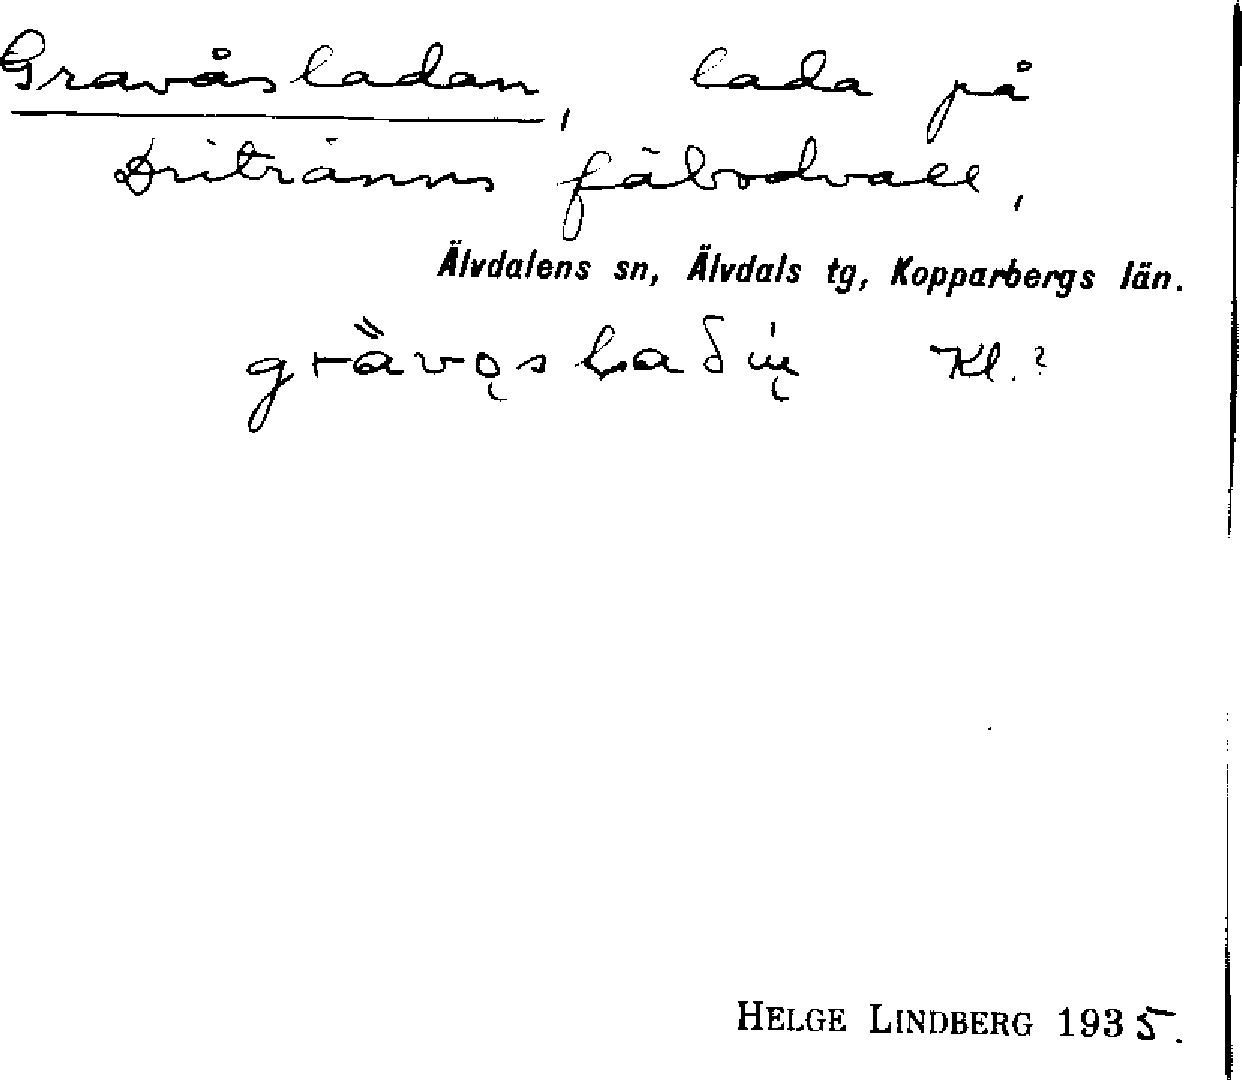 Gravåsladan, lada på
Dritränns fäbodvall,
Älvdalens sn, Älvdals tg, Kopparbergs län.
Kl.?
HELGE LINDBERG 1935.